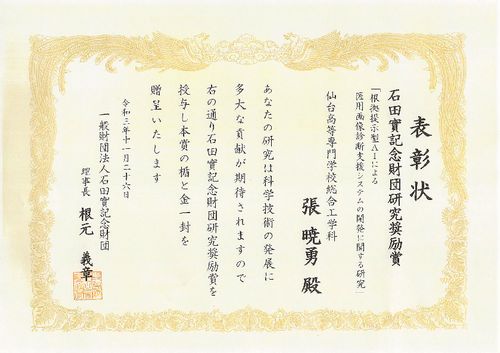 表彰状
石田實記念財団研究奨励賞
「根拠提示型AIによる
医用画像診断支援システムの開発に関する研究」
仙台高等専門学校総合工学科
張暁勇殿
あなたの研究は科学技術の発展に
多大な貢献が期待されますので
右の通り石田實記念財団研究奨励賞を
授与し本賞の楯と金一封を
贈呈いたします
令和三年十一月二十六日
一般財団法人石田實記念財団
理事長 根元義章